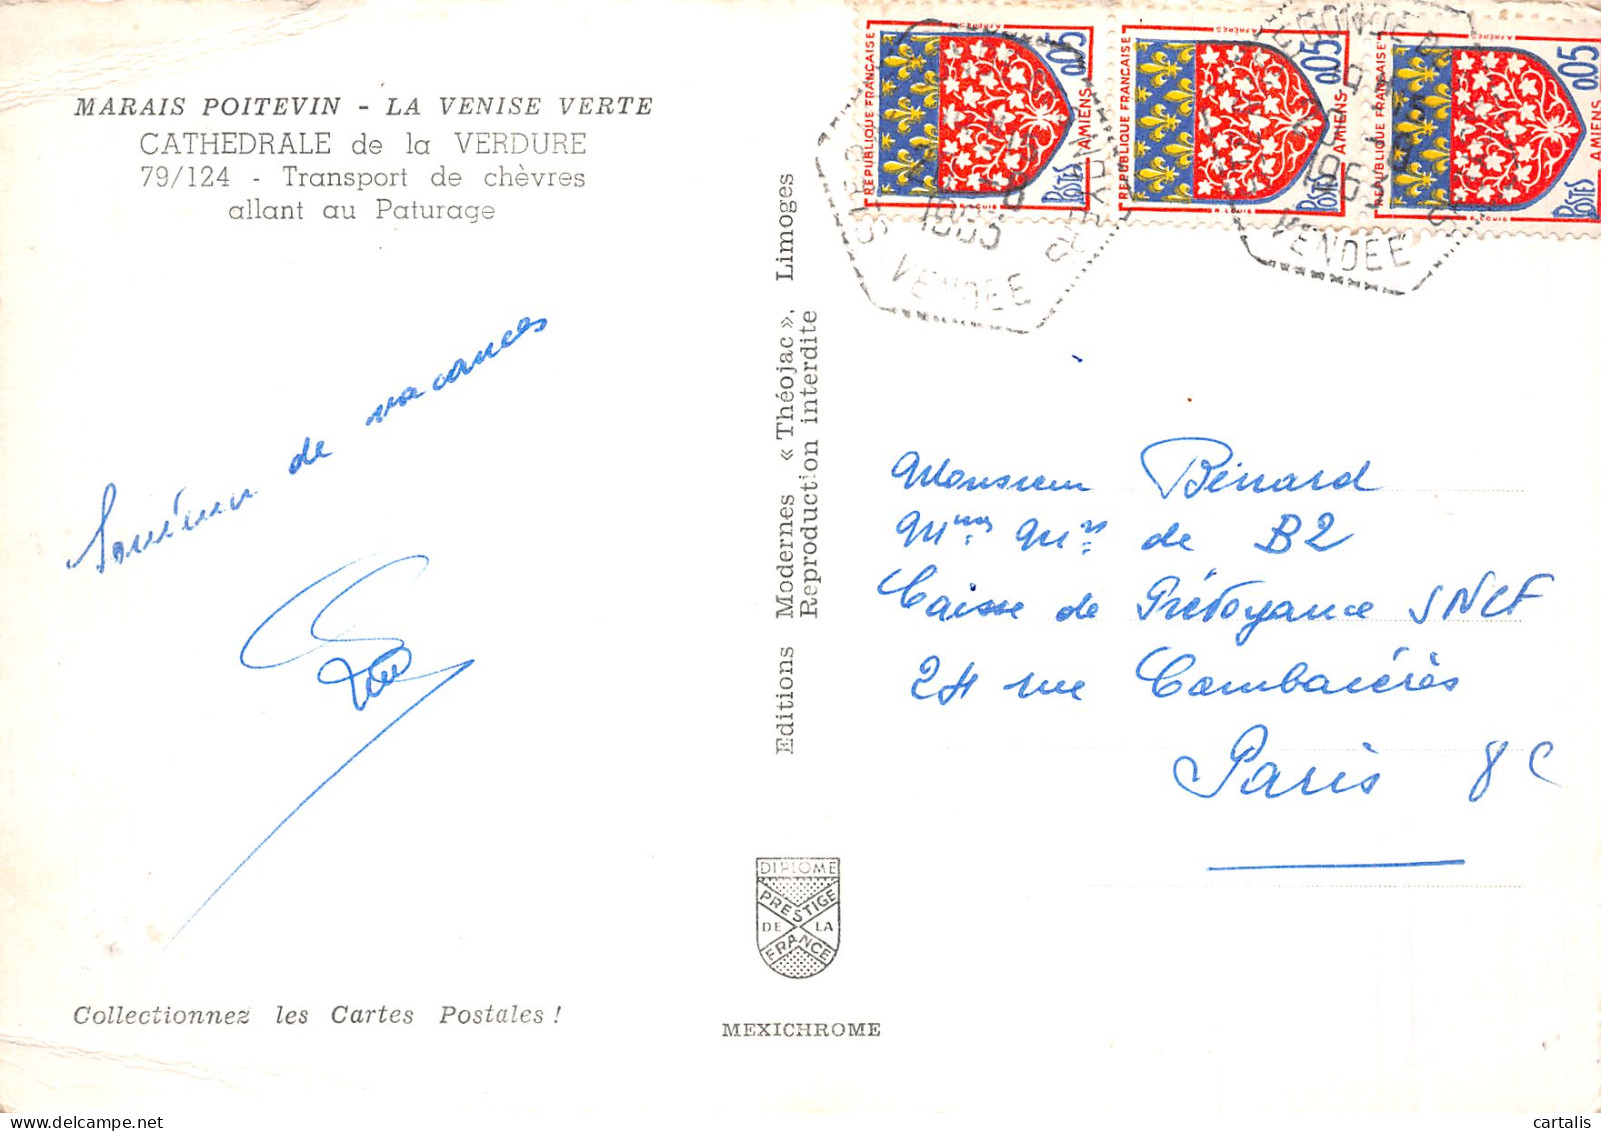 MARAIS POITEVIN - LA VENISE VERTE
CATHEDRALE de la VERDURE
79/124 - Transport de chèvres
allant au Paturage
Souvenir de vacances
Collectionnez les Cartes Postales !
Editions Modernes « Théojac », Limoges
Reproduction interdite
DIPLOME
PRESTIGE
DE LA
FRANCE
MEXICHROME
REPUBLIQUE FRANÇAISE
0,05
AMIENS
POSTES
REPUBLIQUE FRANÇAISE
0,05
AMIENS
POSTES
REPUBLIQUE FRANÇAISE
0,05
AMIENS
POSTES
1963
VENDEE
1963
VENDEE
Monsieur Bénard
de B2
Caisse de Prévoyance SNCF
24 rue Cambacérès
Paris 8e
cartalis
delcampe.net